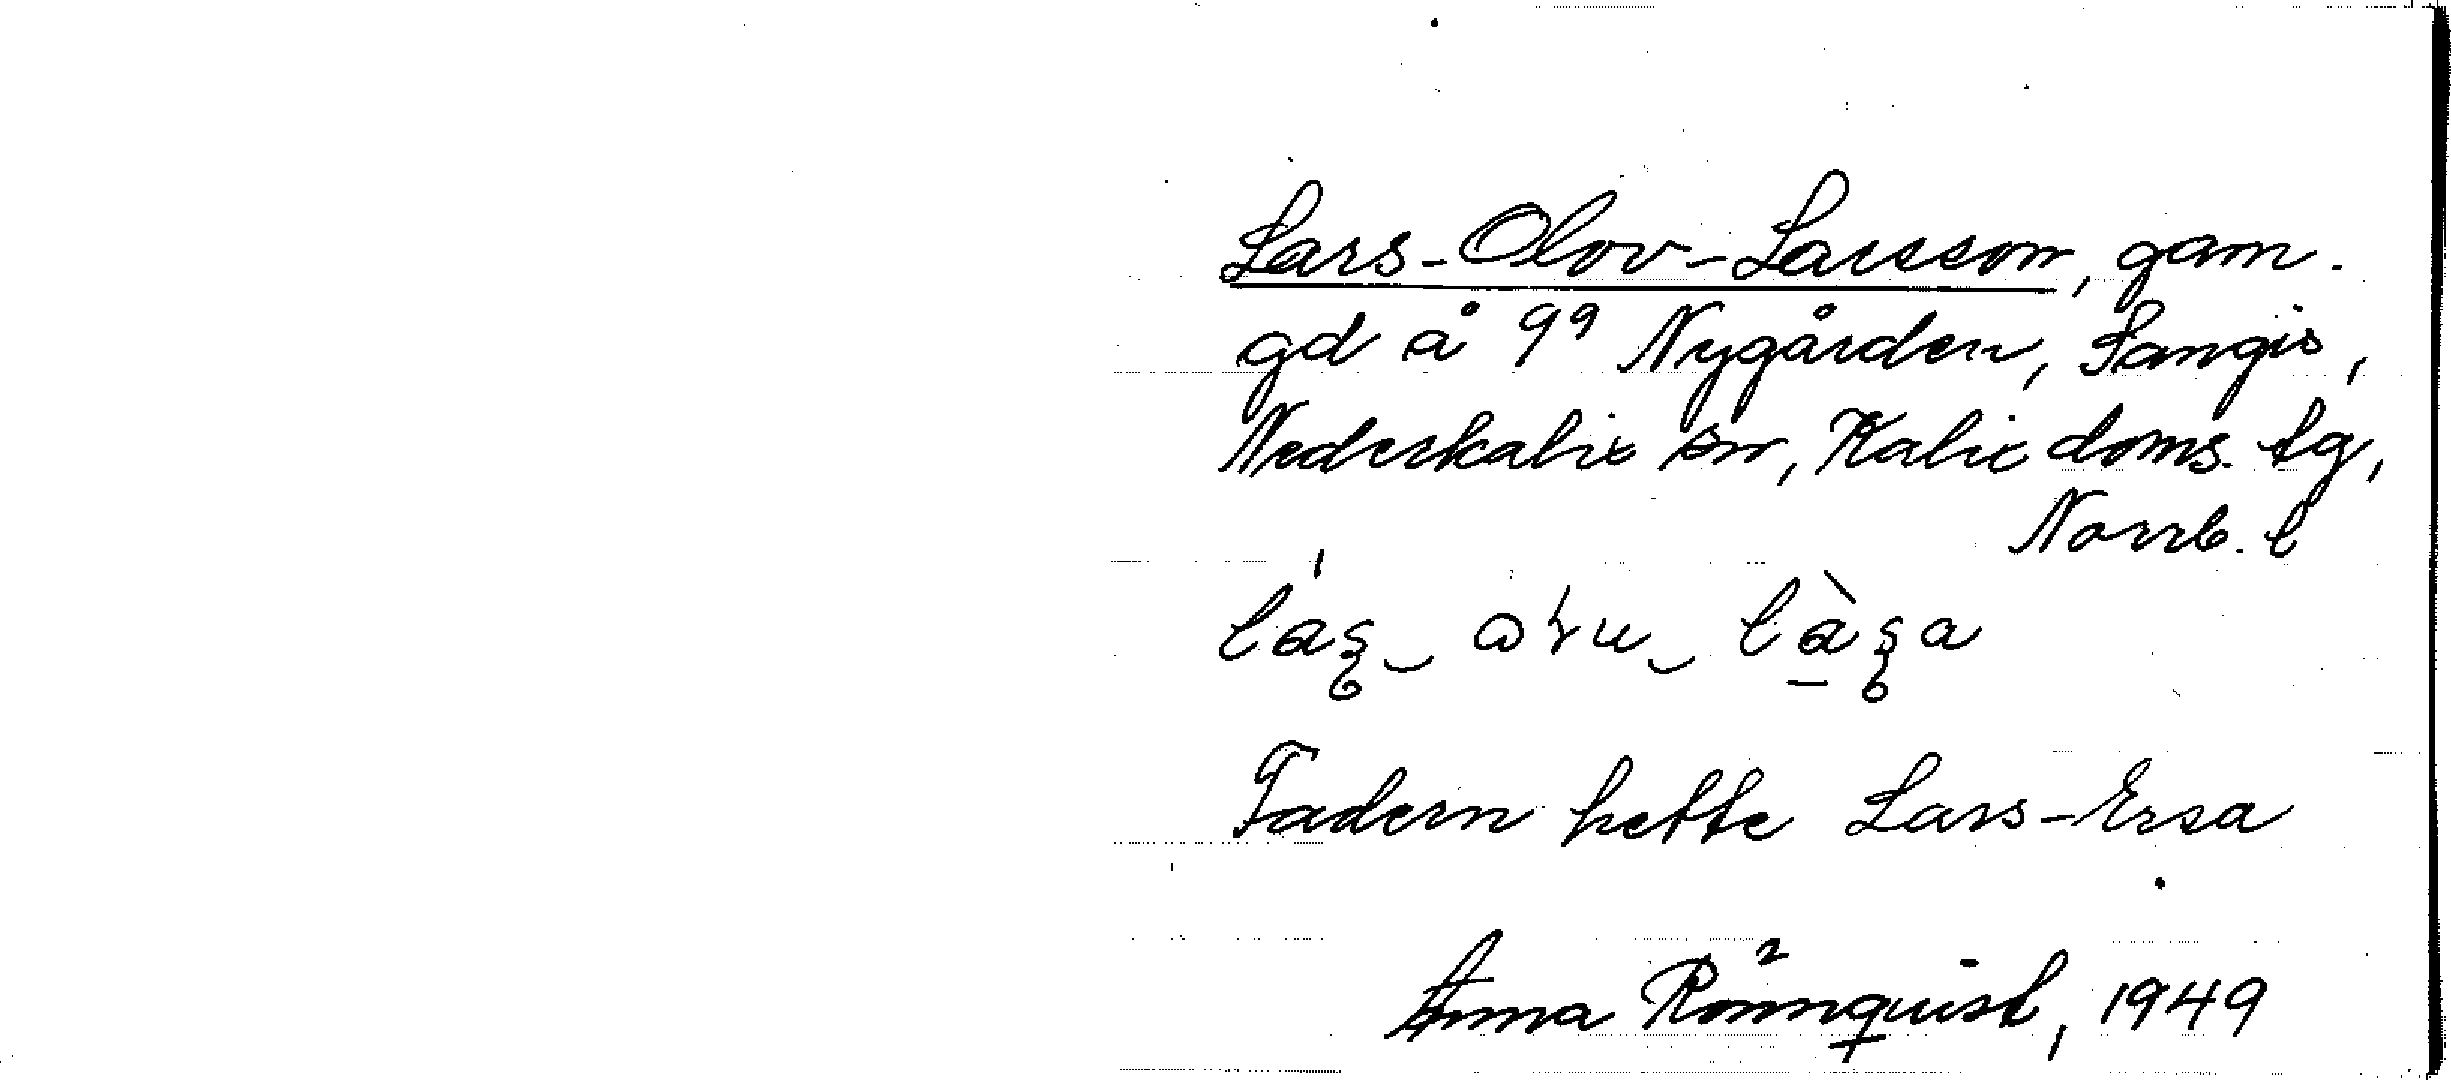 Lars-Olov-Larsson, gam.
gd å 9⁹ Nygården, Sangis,
Nederkalix sn, Kalix doms. lg,
Norrb. l
Fadern hette Lars-Ersa
Anna Rönnquist, 1949